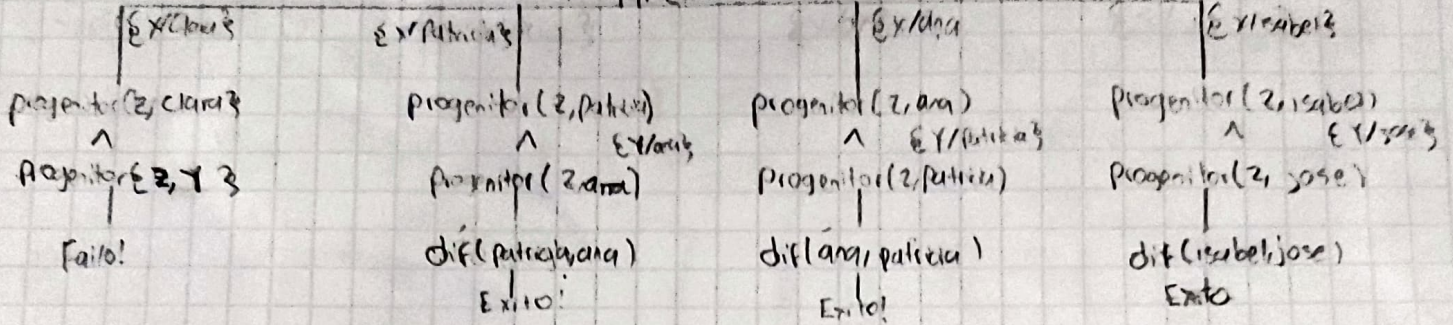 {X/Clara}
progenitor(z, clara}
^
Progenitor{z, Y}
Fallo!
{X/Patricia}
progenitor(z, patricia)
^ {Y/ana}
progenitor(z, ana)
dif(patricia, ana)
Exito!
{X/ana
progenitor(z, ana)
^ {Y/Patricia}
progenitor(z, patricia)
dif(ana, patricia)
Exito!
{X/isabel}
progenitor(z, isabel)
^ {Y/jose}
progenitor(z, jose)
dif(isabel, jose)
Exito